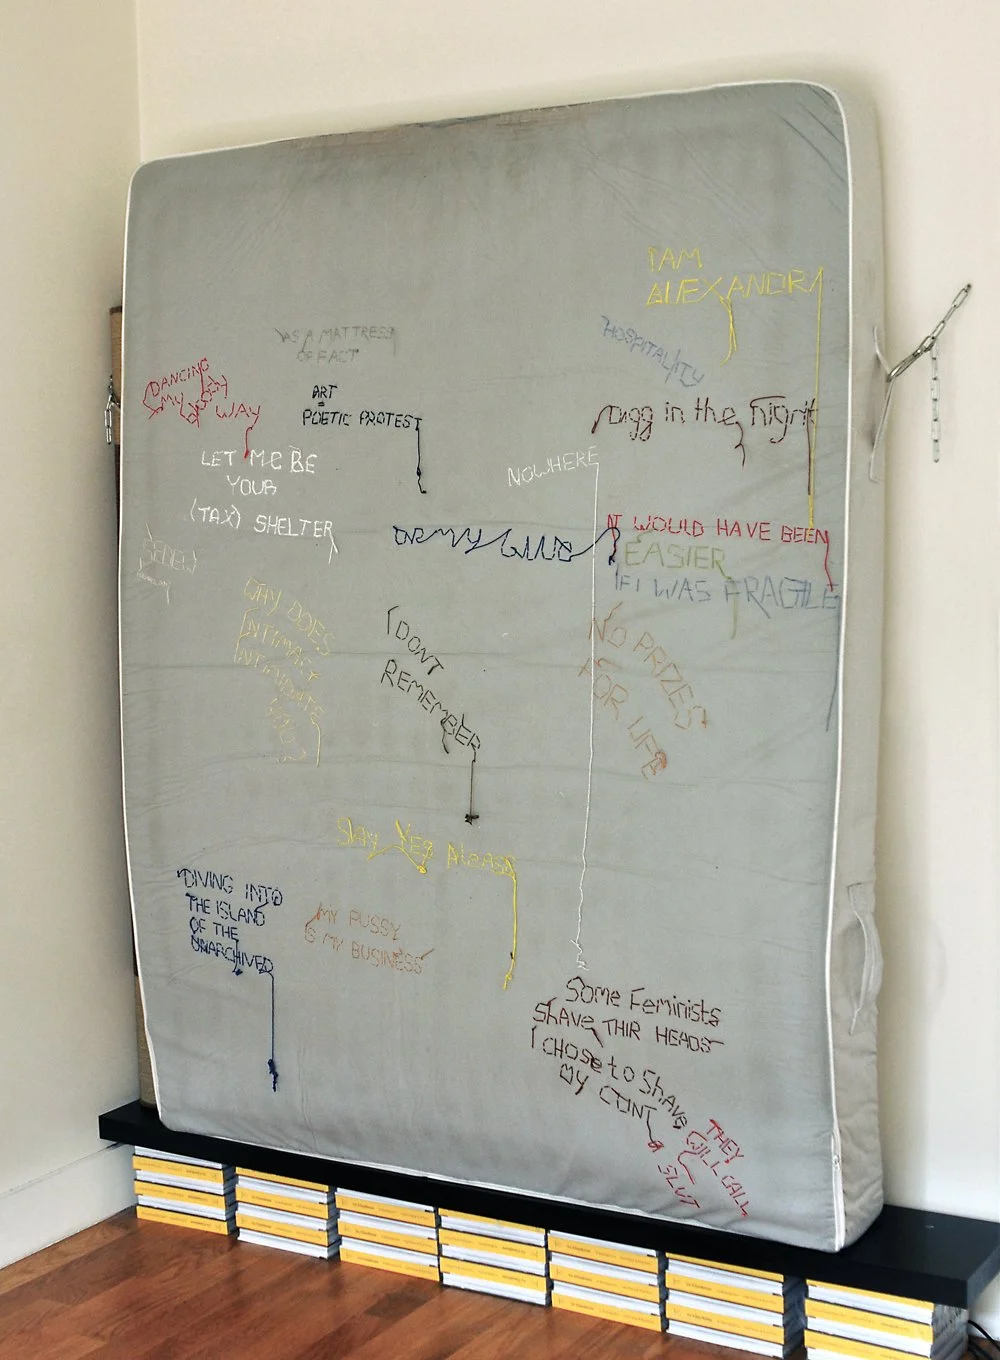 I AM
ALEXANDRA
HOSPITALITY
AS A MATTRESS
OF FACT
DANCING
MY WAY
ART
=
POETIC PROTEST
in the
LET ME BE
YOUR
(TAX) SHELTER
NOWHERE
IT WOULD HAVE BEEN
EASIER
IF I WAS FRAGILE
WHY DOES
INTIMACY
INTIMIDATE
YOU?
I DONT
REMEMBER
NO PRIZES
FOR LIFE
SAY YES PLEASE
DIVING INTO
THE ISLAND
OF THE
UNARCHIVED
MY PUSSY
IS MY BUSINESS
Some Feminists
ShAVE THIR HEADS
I CHOSE to ShAVE
MY CUNT
THEY
WILL CALL
A SLUT